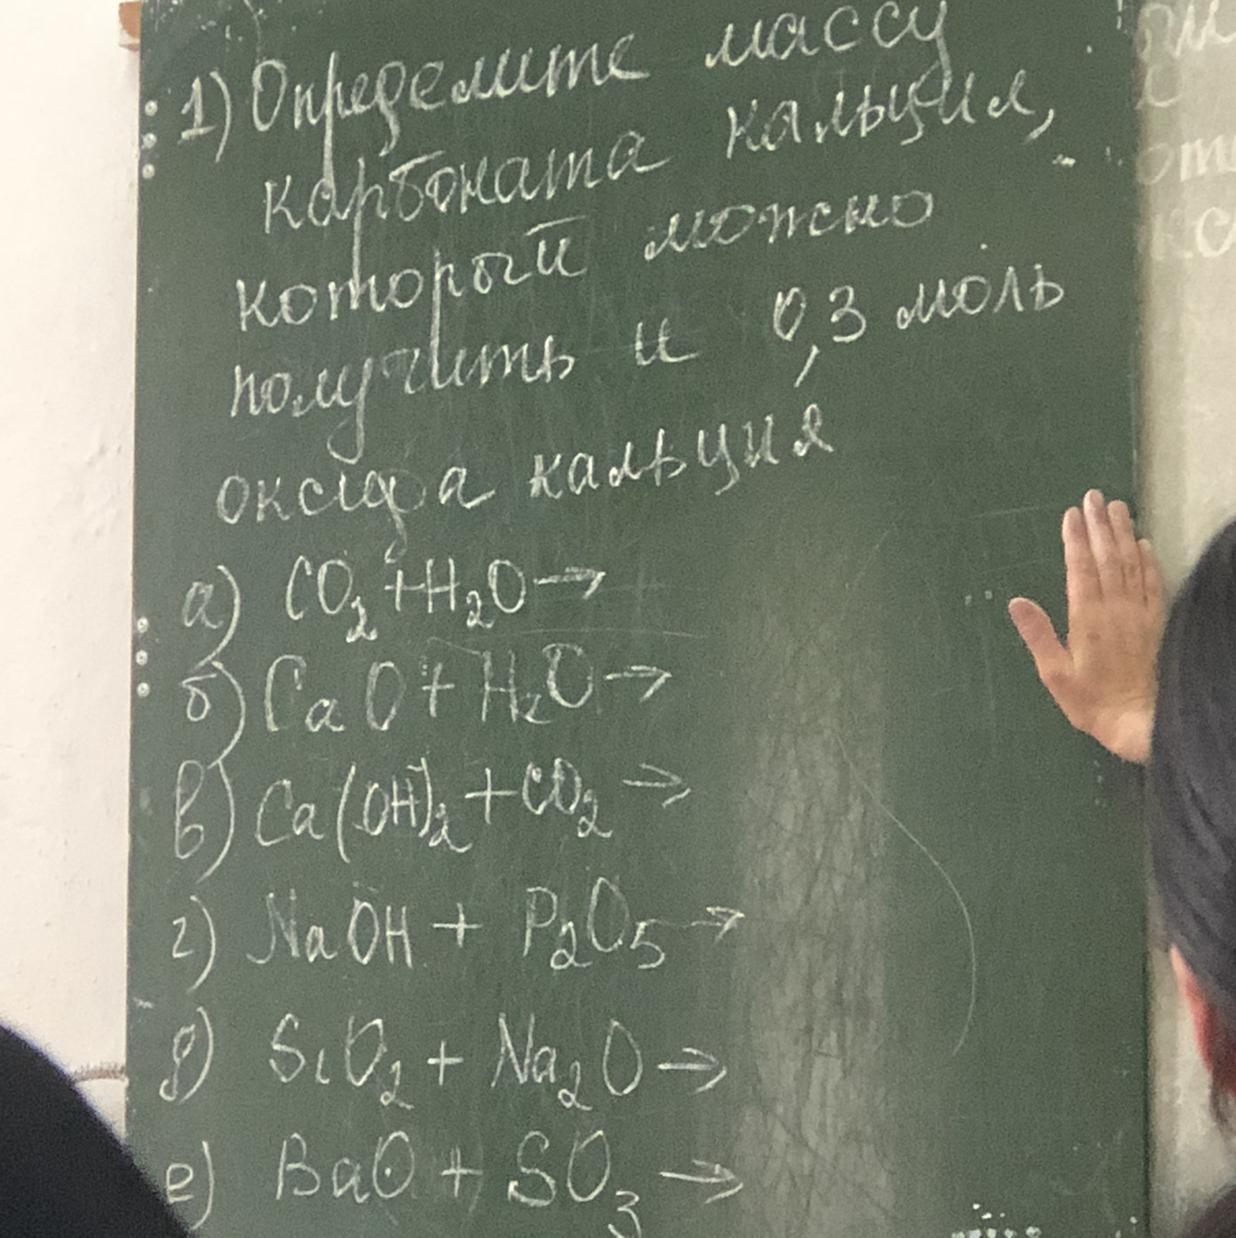 1) Определите массу
карбоната кальция,
который можно
получить и 0,3 моль
оксида кальция
а) CO₂ + H₂O →
б) CaO + H₂O →
в) Ca(OH)₂ + CO₂ →
г) NaOH + P₂O₅ →
д) SiO₂ + Na₂O →
е) BaO + SO₃ →